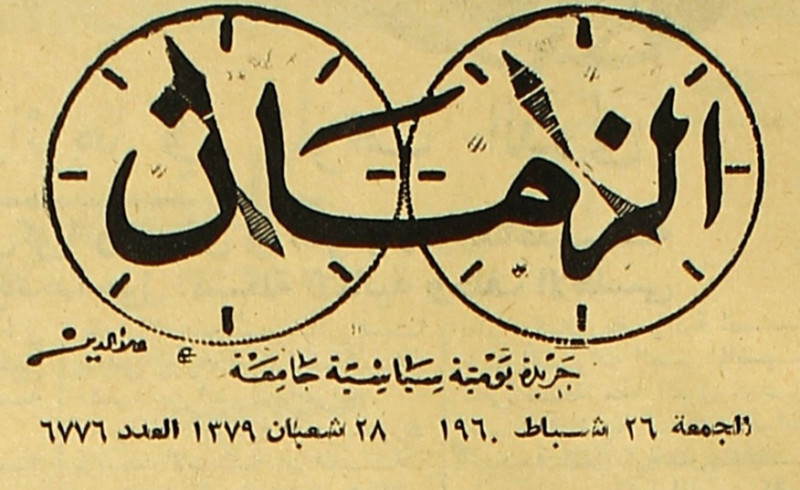 الزمان
علاء الدين
جريدة يومية سياسية جامعة
الجمعة ٢٦ شباط ١٩٦٠ ٢٨ شعبان ١٣٧٩ العدد ٦٧٧٦